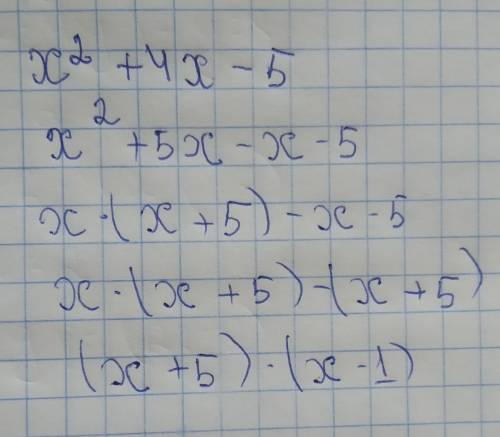 x² + 4x - 5
x² + 5x - x - 5
x · (x + 5) - x - 5
x · (x + 5) - (x + 5)
(x + 5) · (x - 1)